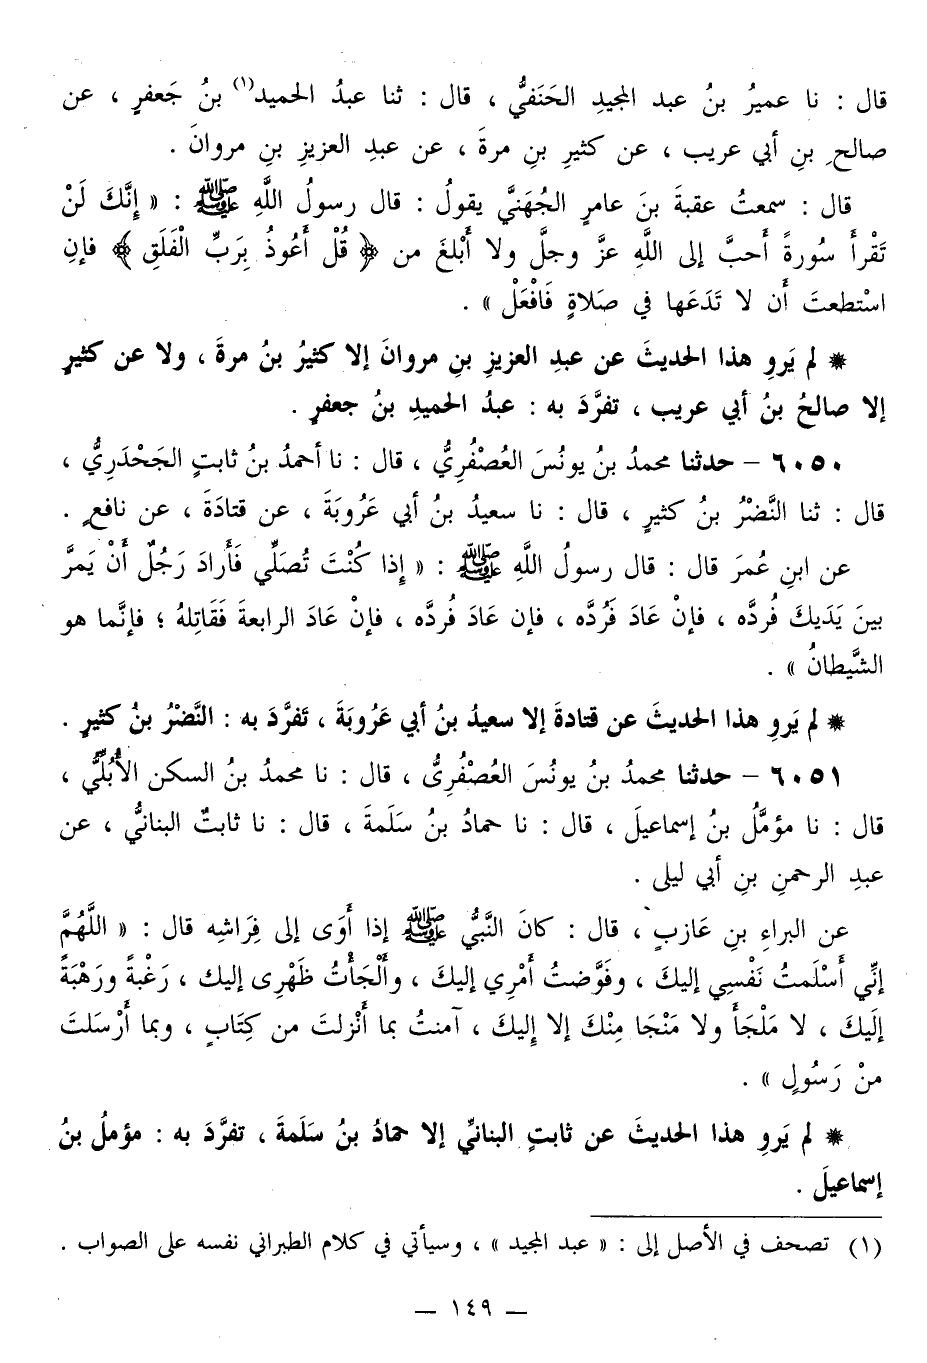 قال : نا عميرُ بنُ عبد المجيدِ الحَنَفيُّ ، قال : ثنا عبدُ الحميد(١) بنُ جَعفرٍ ، عن
صالحِ بنِ أبي عريب ، عن كثيرِ بنِ مرةَ ، عن عبدِ العزيزِ بنِ مروانَ .
قال : سمعتُ عقبةَ بنَ عامرٍ الجُهَنيَّ يقولُ : قال رسولُ اللَّهِ ﷺ : « إِنَّكَ لَنْ
تَقْرأَ سُورةً أَحبَّ إلى اللَّهِ عزَّ وجلَّ ولا أَبْلغَ من ﴿ قُلْ أَعُوذُ بِرَبِّ الْفَلَقِ ﴾ فإنِ
اسْتطعتَ أَن لا تَدَعَها في صَلاةٍ فَافْعَلْ » .
* لم يَروِ هذا الحديثَ عن عبدِ العزيزِ بنِ مروانَ إلا كثيرُ بنُ مرةَ ، ولا عن كثيرٍ
إلا صالحُ بنُ أبي عريب ، تفرَّدَ به : عبدُ الحميدِ بنُ جعفرٍ .
٦٠٥٠ – حدثنا محمدُ بنُ يونُسَ العُصْفُرِيُّ ، قال : نا أحمدُ بنُ ثابتٍ الجَحْدَرِيُّ ،
قال : ثنا النَّضْرُ بنُ كثيرٍ ، قال : نا سعيدُ بنُ أبي عَرُوبَةَ ، عن قتادَةَ ، عن نافعٍ .
عن ابنِ عُمرَ قال : قال رسولُ اللَّهِ ﷺ : « إِذا كُنْتَ تُصَلِّي فَأَرادَ رَجُلٌ أَنْ يَمرَّ
بينَ يَدَيكَ فُردَّه ، فإنْ عَادَ فَرُدَّه ، فإن عَادَ فُردَّه ، فإنْ عَادَ الرابعةَ فَقَاتِلهُ ؛ فإنَّما هو
الشَّيطانُ » .
* لم يَروِ هذا الحديثَ عن قتادةَ إلا سعيدُ بنُ أبي عَرُوبَةَ ، تَفرَّدَ به : النَّضْرُ بنُ كثيرٍ .
٦٠٥١ – حدثنا محمدُ بنُ يونُسَ العُصْفُرِىُّ ، قال : نا محمدُ بنُ السكن الأُبُلِّيُّ ،
قال : نا مؤمَّلُ بنُ إسماعيلَ ، قال : نا حمادُ بنُ سَلَمةَ ، قال : نا ثابتٌ البنانيُّ ، عن
عبدِ الرحمنِ بنِ أبي ليلى .
عن البراءِ بنِ عَازبٍ ، قال : كانَ النَّبيُّ ﷺ إذا أَوَى إلى فِرَاشِه قال : « اللَّهُمَّ
إنِّي أَسْلَمتُ نَفْسِي إليكَ ، وفَوَّضتُ أمْرِي إليكَ ، وأَلْجَأْتُ ظَهْرِى إليك ، رَغْبةً ورَهْبَةً
إلَيكَ ، لا مَلْجَأَ ولا مَنْجَا مِنْكَ إلا إِلَيكَ ، آمنتُ بما أَنْزلتَ من كِتَابٍ ، وبما أَرْسَلتَ
منْ رَسُولٍ » .
* لم يَروِ هذا الحديثَ عن ثابتٍ البنانيِّ إلا حمادُ بنُ سَلَمةَ ، تفرَّدَ به : مؤملُ بنُ
إسماعيلَ .
(١) تصحف في الأصل إلى : « عبد المجيد » ، وسيأتي في كلام الطبراني نفسه على الصواب .
— ١٤٩ —